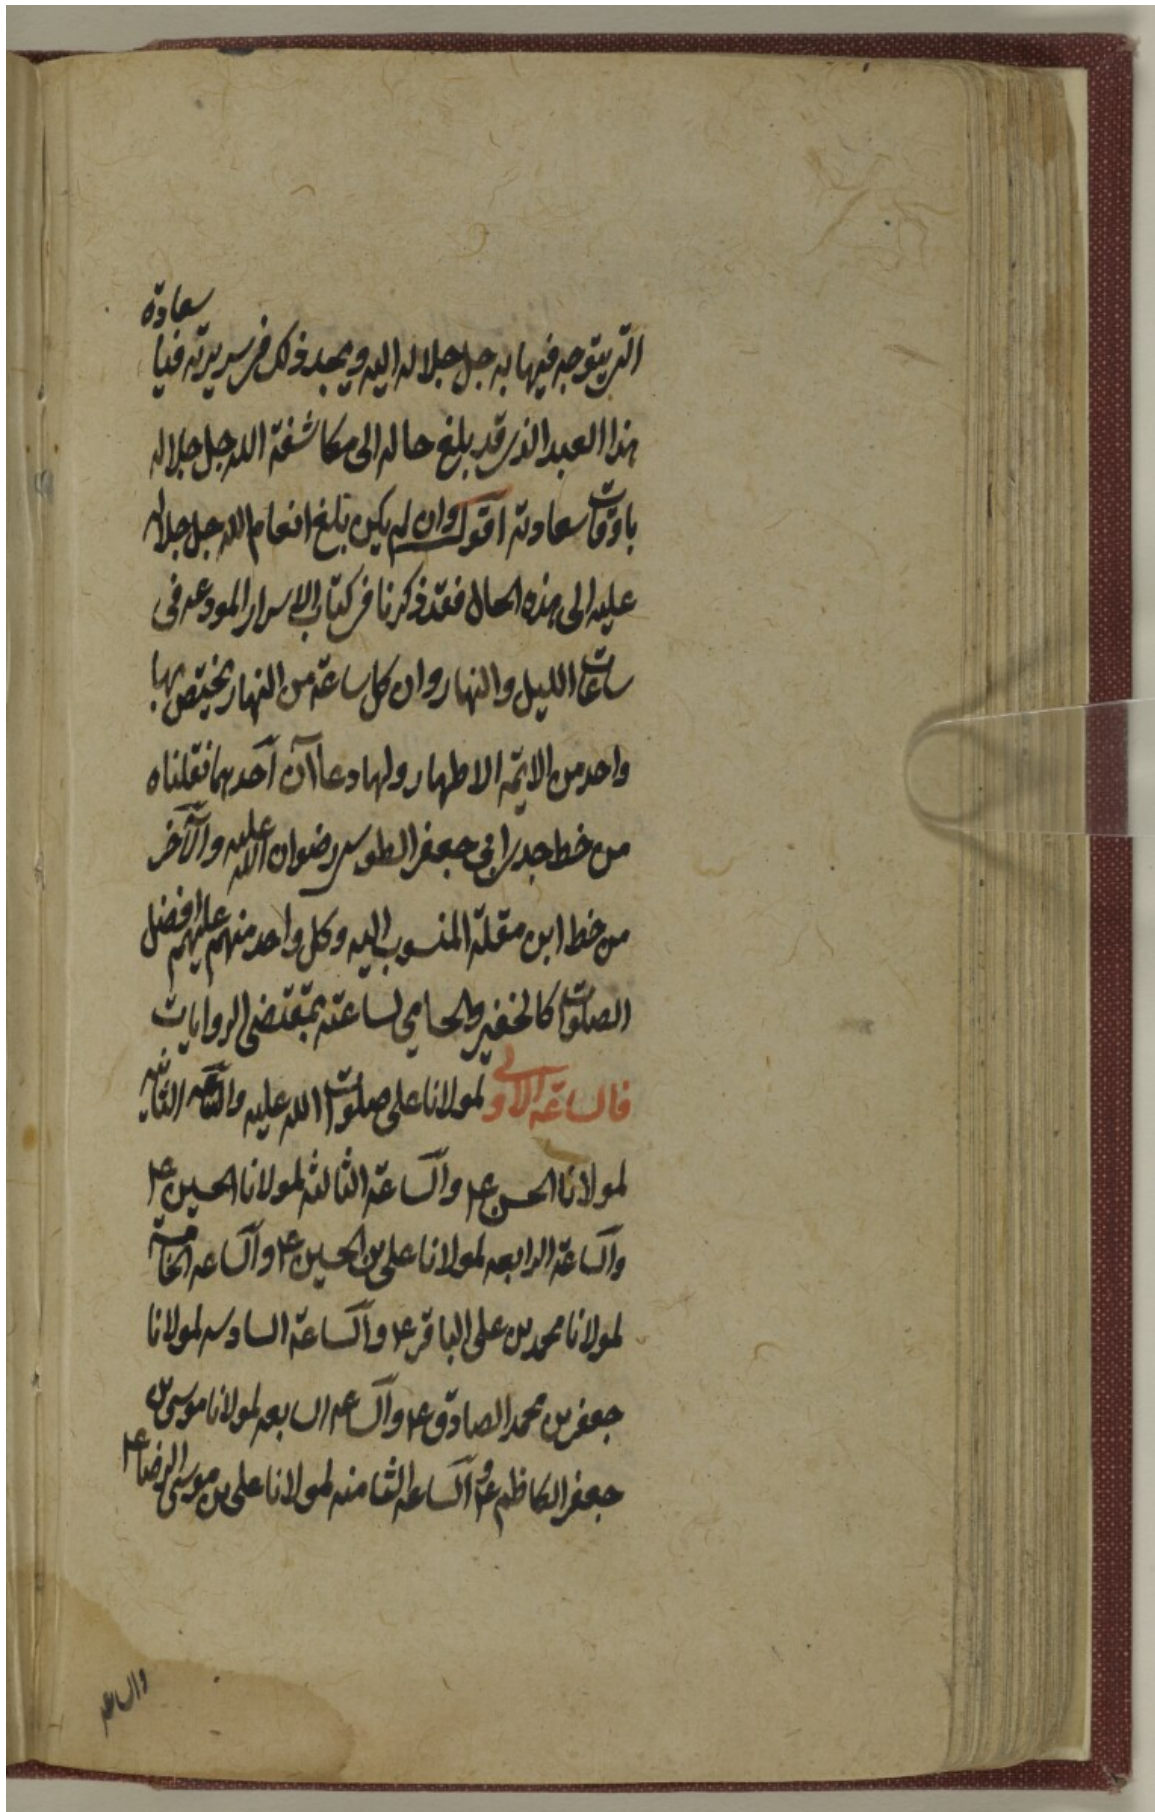 التی یتوجه فیها به جل جلاله الیه ویجد ذلک فی سریرته فیا سعادة
هذا العبد الذی قد بلغ حاله الی مکاشفة الله جل جلاله
باوقات سعادته اقول وان لم یکن بلغ انعام الله جل جلاله
علیه الی هذه الحال فقد ذکرنا فی کتاب الاسرار المودعه فی
ساعات اللیل والنهار وان کل ساعة من النهار یختص بها
واحد من الایمّه الاطهار ولها دعاآن احدهما نقلناه
من خط جدی ابی جعفر الطوسی رضوان الله علیه والآخر
من خط ابن مقلة المنسوب الیه وکل واحد منهم علیهم افضل
الصلوات کالخفیر والحامی لساعته بمقتضی الروایات
فالساعة الاولی لمولانا علی صلوات الله علیه والساعه الثانیه
لمولانا الحسن ع۴ والساعة الثالثه لمولانا الحسین ع۴
والساعة الرابعه لمولانا علی بن الحسین ع۴ والساعه الخامسة
لمولانا محمد بن علی الباقر ع۴ والساعة السادسه لمولانا
جعفر بن محمد الصادق ع۴ والساعه السابعه لمولانا موسی بن
جعفر الکاظم ع۴ والساعه الثامنه لمولانا علی بن موسی الرضا ع۴
والساعه